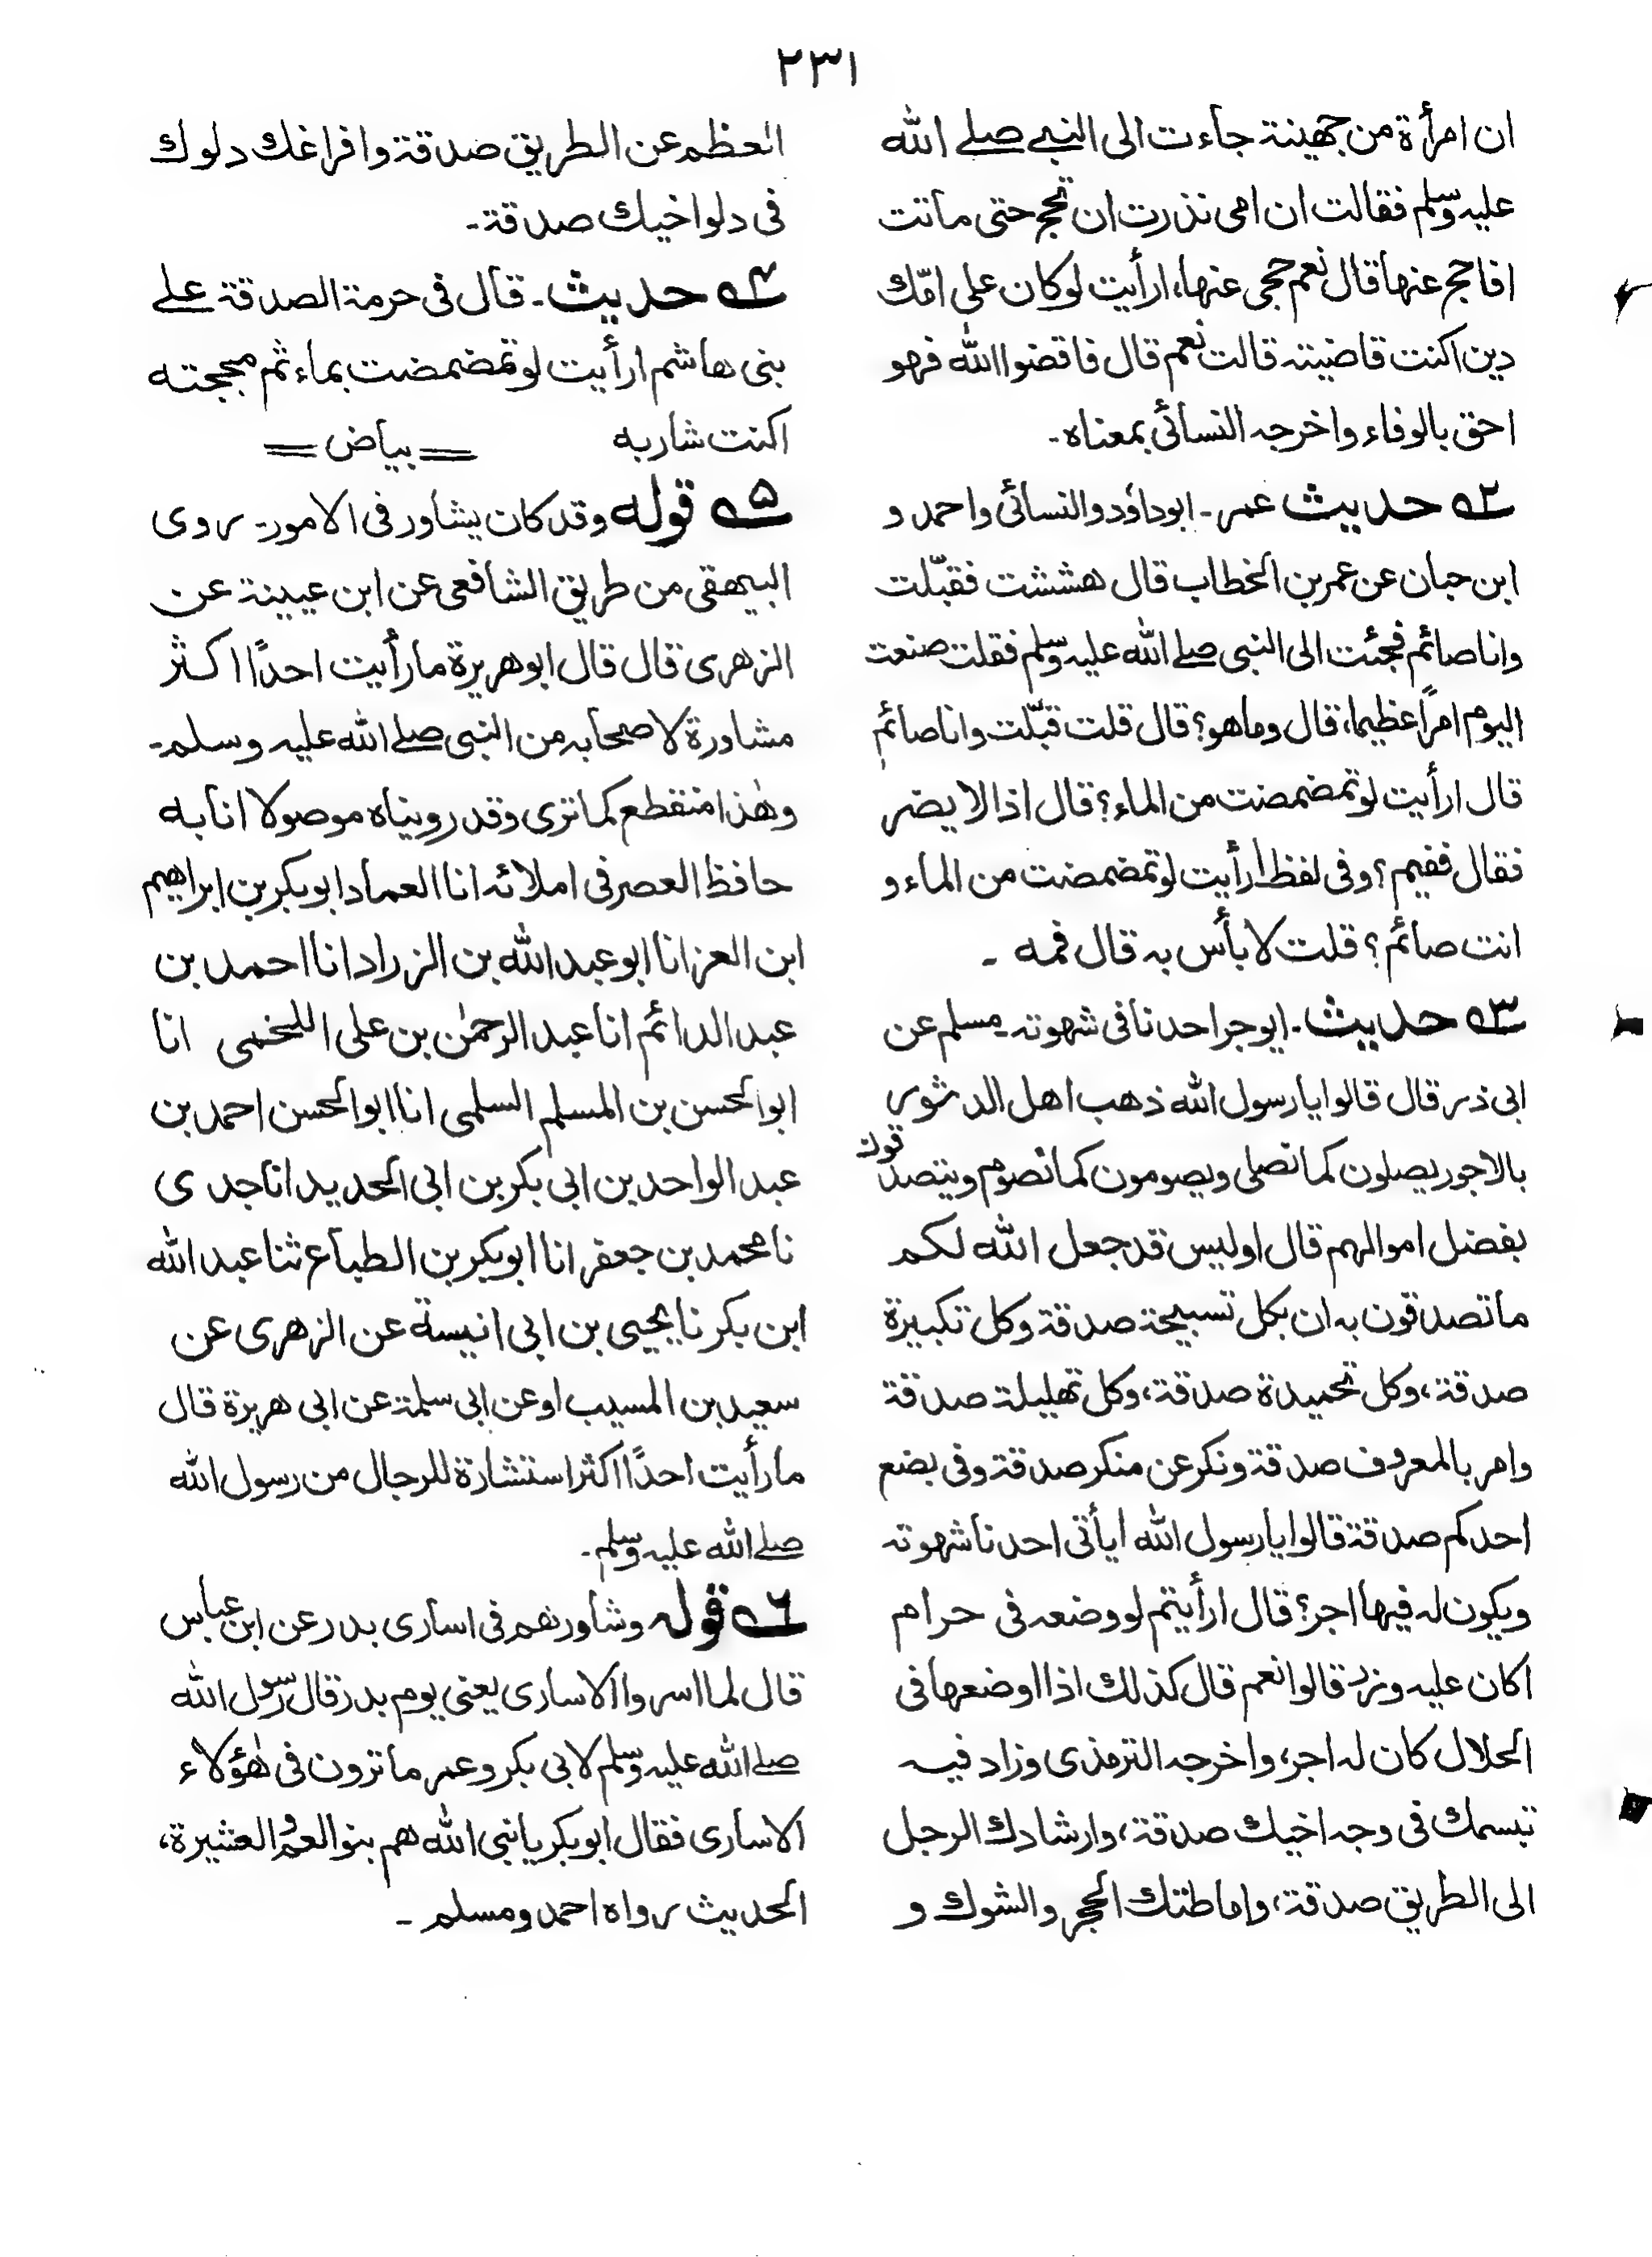 ۲۳۱
ان امرأة من جهينة جاءت الى النبى صلے الله
عليه وسلم فقالت ان امى نذرت ان تحج حتى ماتت
افاحج عنها قال نعم حجى عنها، ارأيت لو كان على امّك
دين اكنت قاضيته قالت نعم قال فاقضوا الله فهو
احق بالوفاء واخرجه النسائى بمعناه۔
۲ حديث عمر۔ ابوداؤد والنسائى واحمد و
ابن حبان عن عمر بن الخطاب قال هششت فقبّلت
وانا صائم فجئت الى النبى صلے الله عليه وسلم فقلت صنعت
اليوم امرًا عظيما، قال وما هو؟ قال قلت قبّلت وانا صائم
قال ارأيت لو تمضمضت من الماء؟ قال اذا لا يضر
فقال ففيم؟ وفى لفظ ارأيت لو تمضمضت من الماء و
انت صائم؟ قلت لا بأس به قال فمه ۔
۳ حديث۔ ايوجر احدنا فى شهوته۔ مسلم عن
ابى ذر قال قالوا يا رسول الله ذهب اهل الدثور
بالاجور يصلون كما نصلى ويصومون كما نصوم ويتصدقون
بفضل اموالهم قال اوليس قد جعل الله لكم
ما تصدقون به ان بكل تسبيحة صدقة وكل تكبيرة
صدقة، وكل تحميدة صدقة، وكل تهليلة صدقة
وامر بالمعروف صدقة ونكر عن منكر صدقة وفى بضع
احدكم صدقة قالوا يا رسول الله ايأتى احدنا شهوته
ويكون له فيها اجر؟ قال ارأيتم لو وضعه فى حرام
اكان عليه وزر قالوا نعم قال كذلك اذا اوضعها فى
الحلال كان له اجر، واخرجه الترمذى وزاد فيه
تبسمك فى وجه اخيك صدقة، وارشادك الرجل
الى الطريق صدقة، واماطتك الحجر والشوك و
العظم عن الطريق صدقة وافراغك دلوك
فى دلو اخيك صدقة۔
۴ حديث۔ قال فى حرمة الصدقة علے
بنى هاشم ارأيت لو تمضمضت بماء ثم مججته
اكنت شاربه = بياض =
۵ قوله وقد كان يشاور فى الامور۔ روى
البيهقى من طريق الشافعى عن ابن عيينة عن
الزهرى قال قال ابو هريرة ما رأيت احدًا اكثر
مشاورة لاصحابه من النبى صلے الله عليه وسلم۔
وهٰذا منقطع كما ترى وقد رويناه موصولا انا به
حافظ العصر فى املائه انا العماد ابوبكر بن ابراهيم
ابن العز انا ابو عبد الله بن الزراد انا احمد بن
عبد الدائم انا عبد الرحمٰن بن على اللخمى انا
ابوالحسن بن المسلم السلمى انا ابوالحسن احمد بن
عبد الواحد بن ابى بكر بن ابى الحديد انا جدى
نا محمد بن جعفر انا ابوبكر بن الطباع ثنا عبد الله
ابن بكر نا يحيى بن ابى انيسة عن الزهرى عن
سعيد بن المسيب او عن ابى سلمة عن ابى هريرة قال
ما رأيت احدًا اكثر استشارة للرجال من رسول الله
صلے الله عليه وسلم۔
۶ قوله وشاورهم فى اسارى بدر عن ابن عباس
قال لما اسروا الاسارى يعنى يوم بدر قال رسول الله
صلے الله عليه وسلم لابى بكر وعمر ما ترون فى هٰؤلاء
الاسارى فقال ابوبكر يا نبى الله هم بنو العم والعشيرة،
الحديث رواه احمد ومسلم ۔